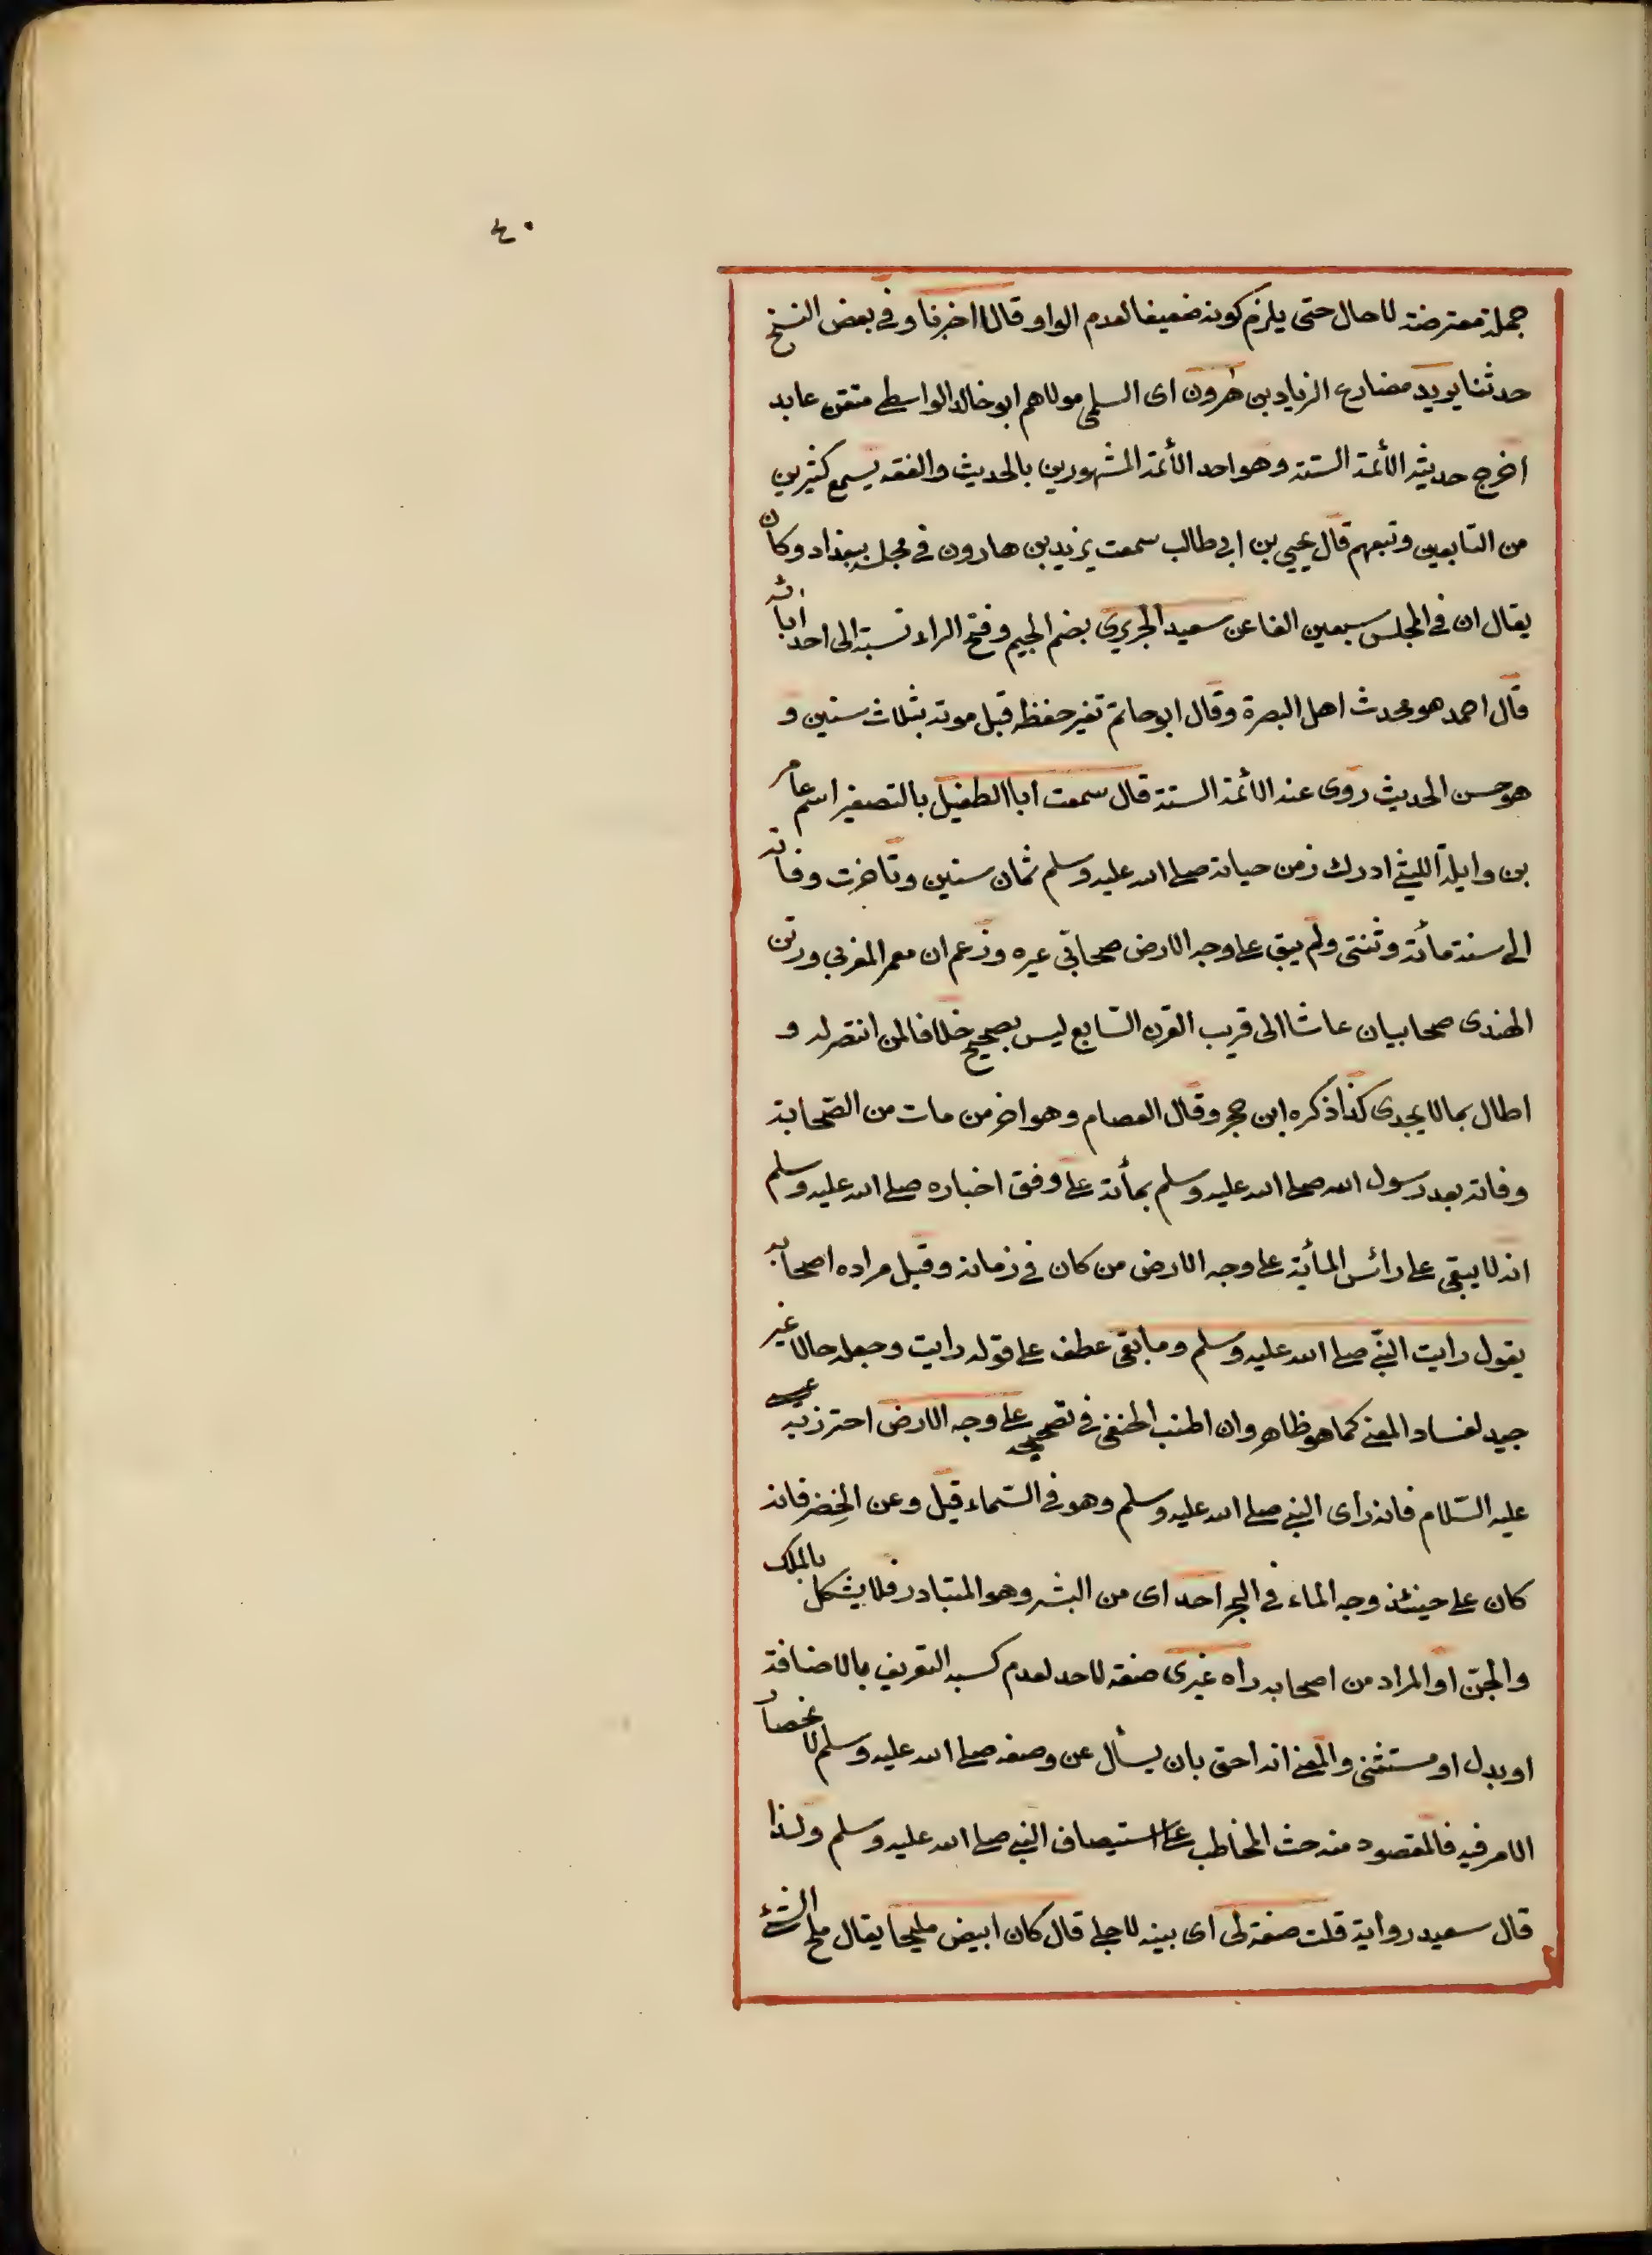 ٤٠
جملة معترضة لا حال حتى يلزم كونه ضعيفا لعدم الواو قالا اخبرنا وفي بعض النسخ
حدثنا يزيد مضارع الزياد بن هرون اى السلمى مولاهم ابو خالد الواسطى متقن عابد
اخرج حديثه الأئمة الستة وهو احد الأئمة المشهورين بالحديث والفقه يسمع كثيرين
من التابعين وتبعهم قال يحيى بن ابى طالب سمعت يزيد بن هارون في مجلسه ببغداد وكان
يقال ان في المجلس سبعين الفا عن سعيد الجريرى بضم الجيم وفتح الراء نسبة الى احد ابائه
قال احمد هو محدث اهل البصرة وقال ابو حاتم تغير حفظه قبل موته بثلاث سنين و
هو حسن الحديث روى عنه الائمة الستة قال سمعت ابا الطفيل بالتصغير اسم عامر
بن وايلة الليثى ادرك زمن حياته صلى الله عليه وسلم ثمان سنين وتاخرت وفاته
الى سنة مائة وثنتى ولم يبق على وجه الارض صحابى غيره وزعم ان معمر المغربى ورتن
الهندى صحابيان عاشا الى قريب القرن السّابع ليس بصحيح خلافا لمن انتصر له و
اطال بما لا يجدى كذا ذكره ابن حجر وقال العصام وهو اخر من مات من الصّحابة
وفاته بعد رسول الله صلى الله عليه وسلم بمأئة على وفق اخباره صلى الله عليه وسلم
انه لا يبقى على رائس المأية على وجه الارض من كان في زمانه وقيل مراده اصحابه
يقول رايت النبّى صلى الله عليه وسلم وما بقى عطف على قوله رايت وجعله حالا غير
جيد لفساد المعنى كما هو ظاهر وان اطنب الحنفى في تصحيحه على وجه الارض احترز به عيسى
عليه السّلام فانه رأى النبى صلى الله عليه وسلم وهو في السّماء قيل وعن الخِضر فانه
كان على حينئذ وجه الماء في البحر احد اى من البشر وهو المتبادر فلا يشكل بالملك
والجنّ او المراد من اصحابه راه غيرى صفة لاحد لعدم كسبه التعريف بالاضافة
او بدل او مستثنى والمعنى انه احق بان يسأل عن وصفه صلى الله عليه وسلم لانحصار
الامر فيه فالمقصود منه حث المخاطب على استيصاف النبى صلى الله عليه وسلم ولذا
قال سعيد رواية قلت صفه لى اى بينه لاجلى قال كان ابيض مليحا يقال ملح الشئ